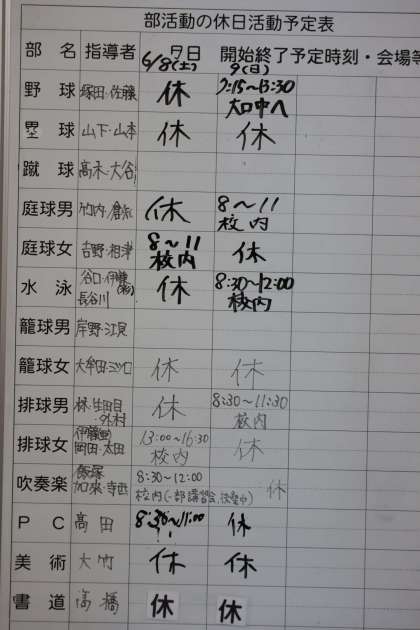 部活動の休日活動予定表
部 名 指導者 月日 開始終了予定時刻・会場等
6/8(土) 9(日)
野 球 塚田・佐藤 休 7:15~13:30
大口中へ
塁 球 山下・山本 休 休
蹴 球 高木・大谷
庭球男 竹内・ 休 8~11
校内
庭球女 吉野・相津 8~11 休
校内
水 泳 谷口・伊藤 休 8:30~12:00
長谷川 校内
籠球男 岸野・江見
籠球女 大牟田・三ツ口 休 休
排球男 林・生田目 休 8:30~11:30
外村 校内
排球女 伊藤 13:00~16:30 休
岡田・太田 校内
吹奏楽 飯塚 8:30~12:00 休
加来・寺西 校内(一部講習会
P C 高田 8:30~11:00 休
美 術 大竹 休 休
書 道 高橋 休 休